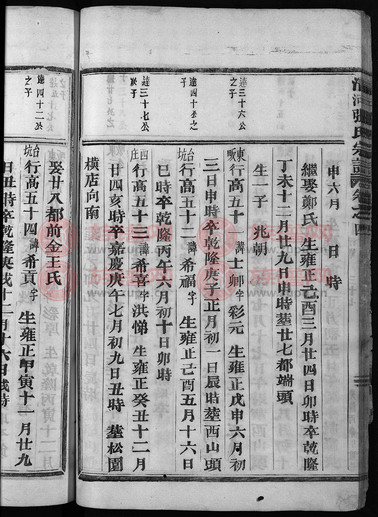 清河張氏宗譜 卷之四
申六月 日 時
繼娶鄭氏 生雍正己酉三月廿四日卯時卒乾隆
丁未十二月廿九日申時塟廿七都端頭
生一子 兆朝
連三十六公之子
東畈 行高五十一 諱士卿 字彩元 生雍正戊申六月初
三日申時卒乾隆庚子正月初一日辰時塟西山頭
達四十基公之子
台坑 行高五十二 諱希福 字 生雍正己酉五月十六日
巳時卒乾隆丙午六月初十日卯時
達三十七公次子
西庄 行高五十三 諱希富 字洪悌 生雍正癸丑十二月
廿四亥時卒嘉慶庚午七月初九日丑時 塟松園
橫店向南
達四十二公之子
台坑 行高五十四 諱希貢 字 生雍正甲寅十一月廿九
日丑時卒乾隆庚戌十二月十六日戌時
娶廿八都前金王氏